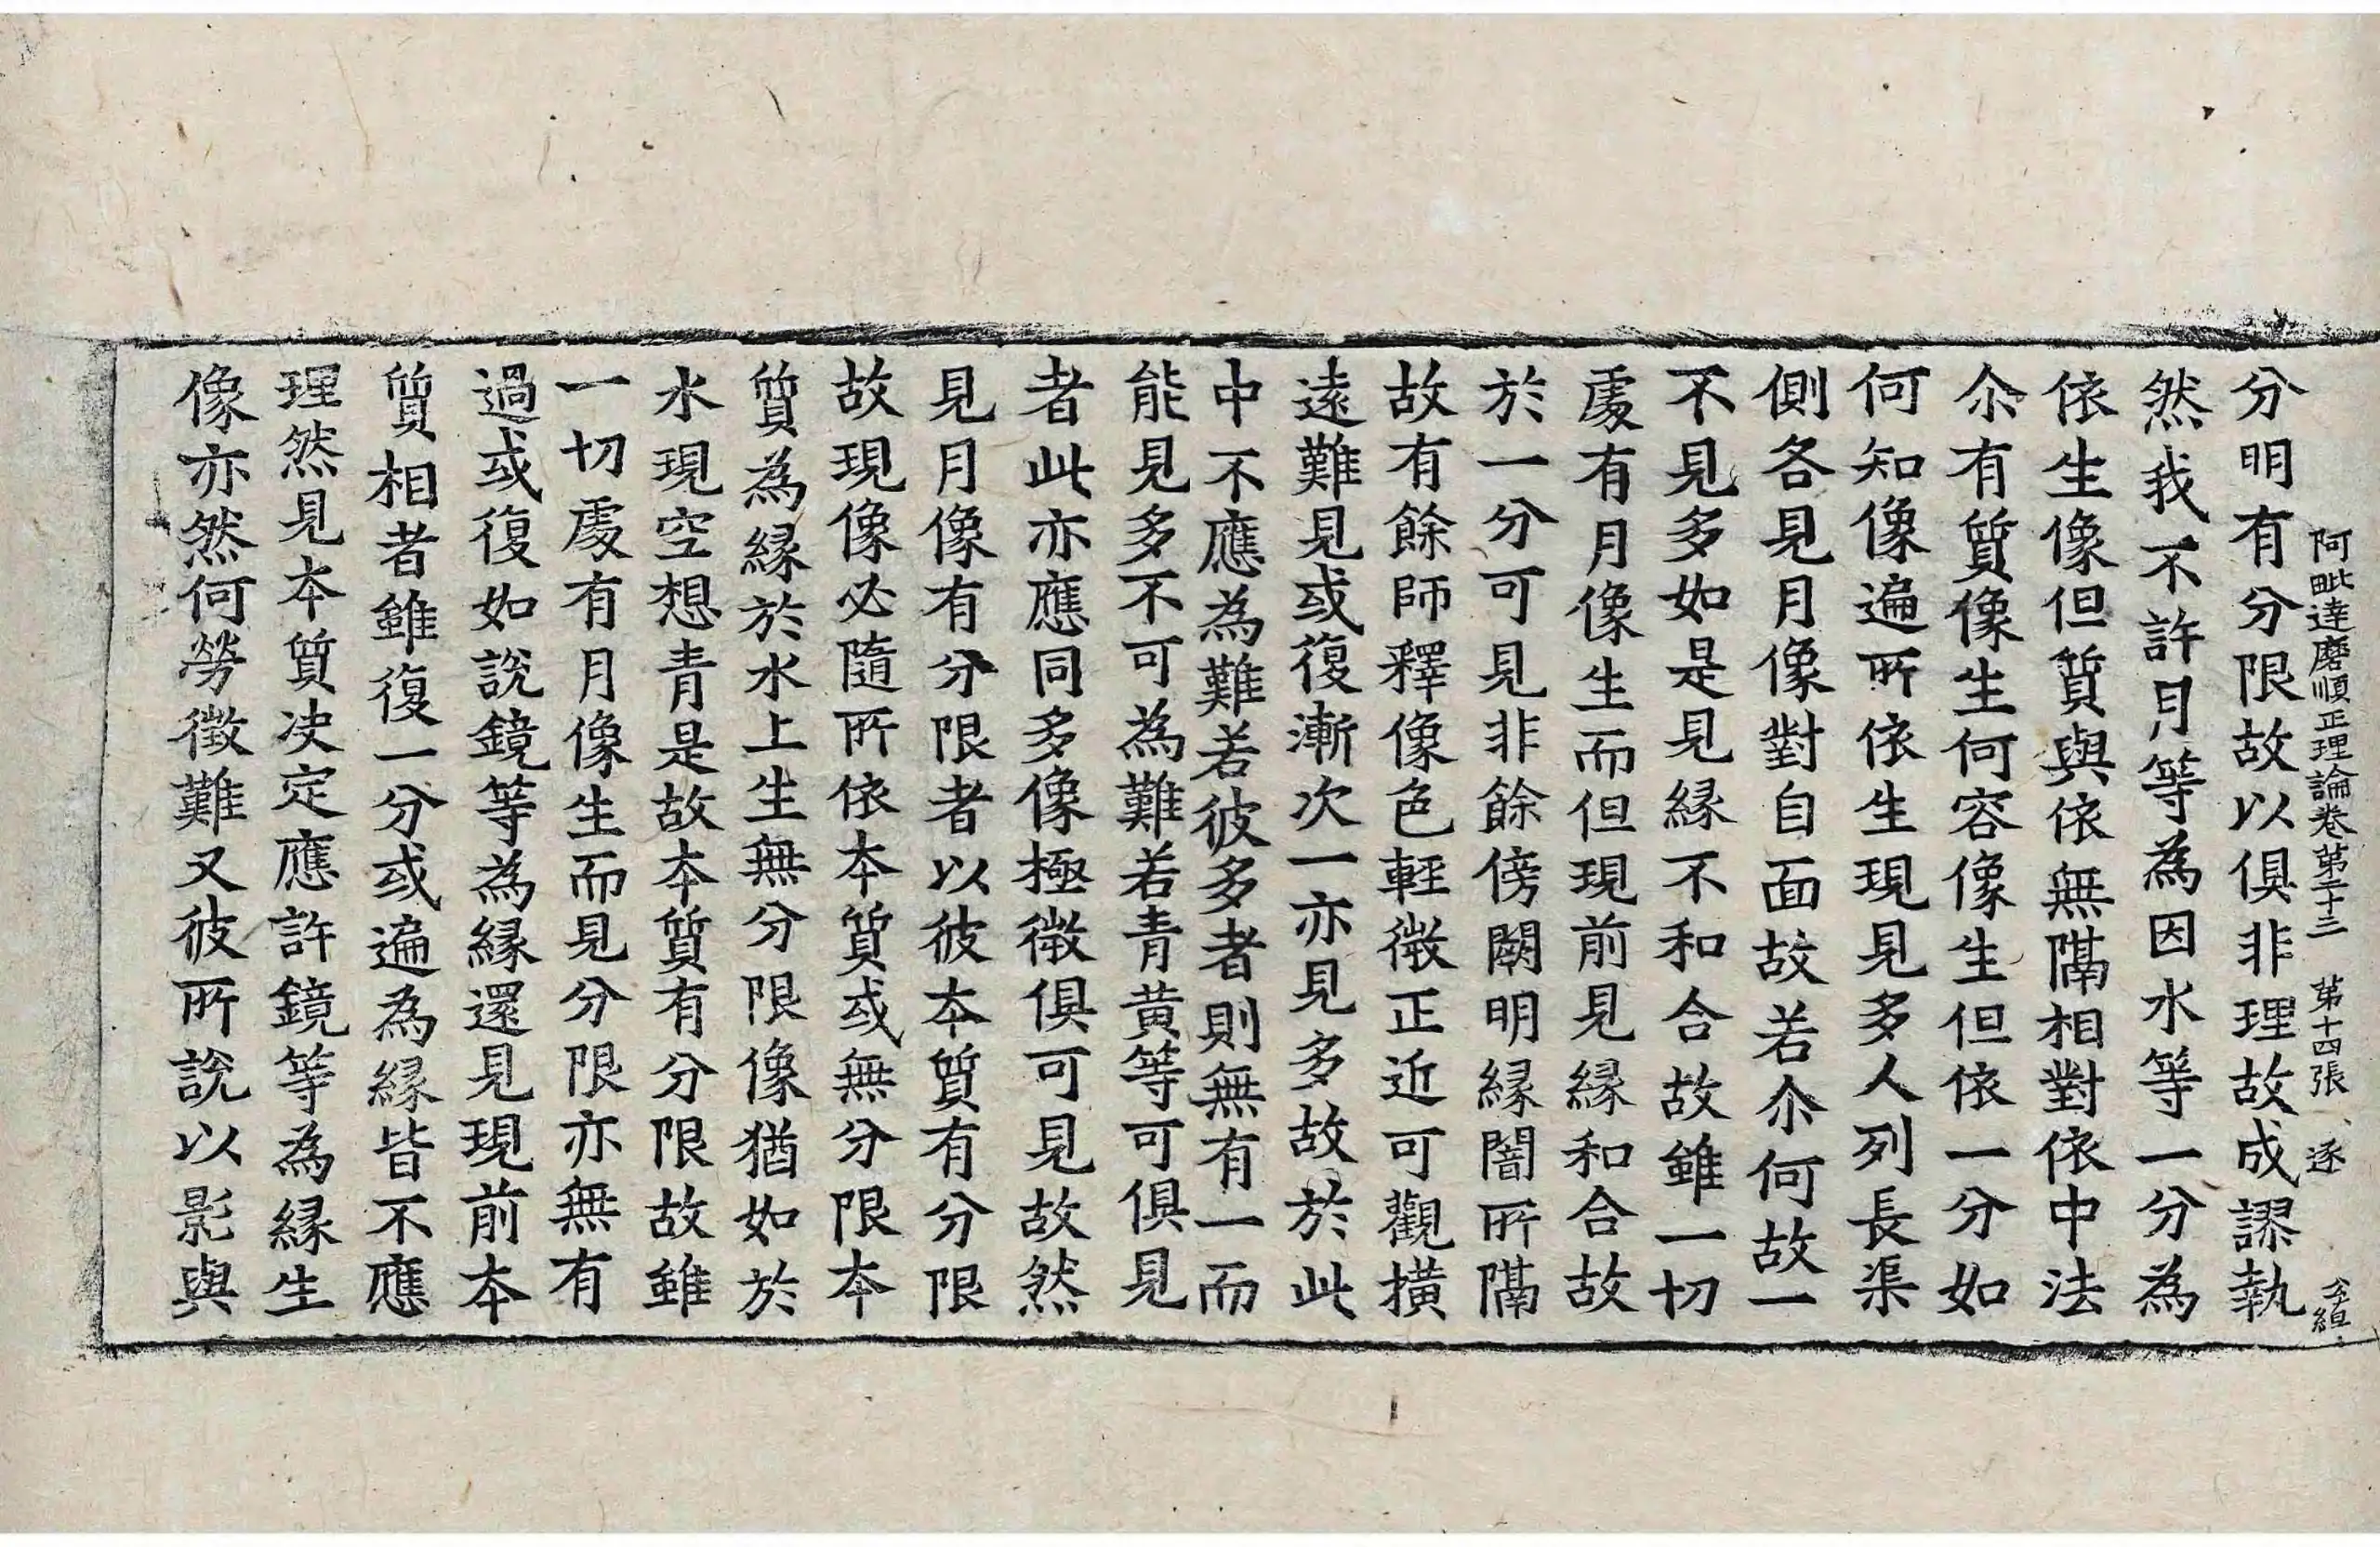 阿毗達磨順正理論卷第二十三 第十四張 逐
分明有分限故以俱非理故成謬執
然我不許月等為因水等一分為
依生像但質與依無隔相對依中法
尒有質像生何容像生但依一分如
何知像遍所依生現見多人列長渠
側各見月像對自面故若尒何故一
不見多如是見緣不和合故雖一切
處有月像生而但現前見緣和合故
於一分可見非餘傍闕明緣闇所隔
故有餘師釋像色輕微正近可觀橫
遠難見或復漸次一亦見多故於此
中不應為難若彼多者則無有一而
能見多不可為難若青黃等可俱見
者此亦應同多像極微俱可見故然
見月像有分限者以彼本質有分限
故現像必隨所依本質或無分限本
質為緣於水上生無分限像猶如於
水現空想青是故本質有分限故雖
一切處有月像生而見分限亦無有
過或復如說鏡等為緣還見現前本
質相者雖復一分或遍為緣皆不應
理然見本質決定應許鏡等為緣生
像亦然何勞徵難又彼所說以影與